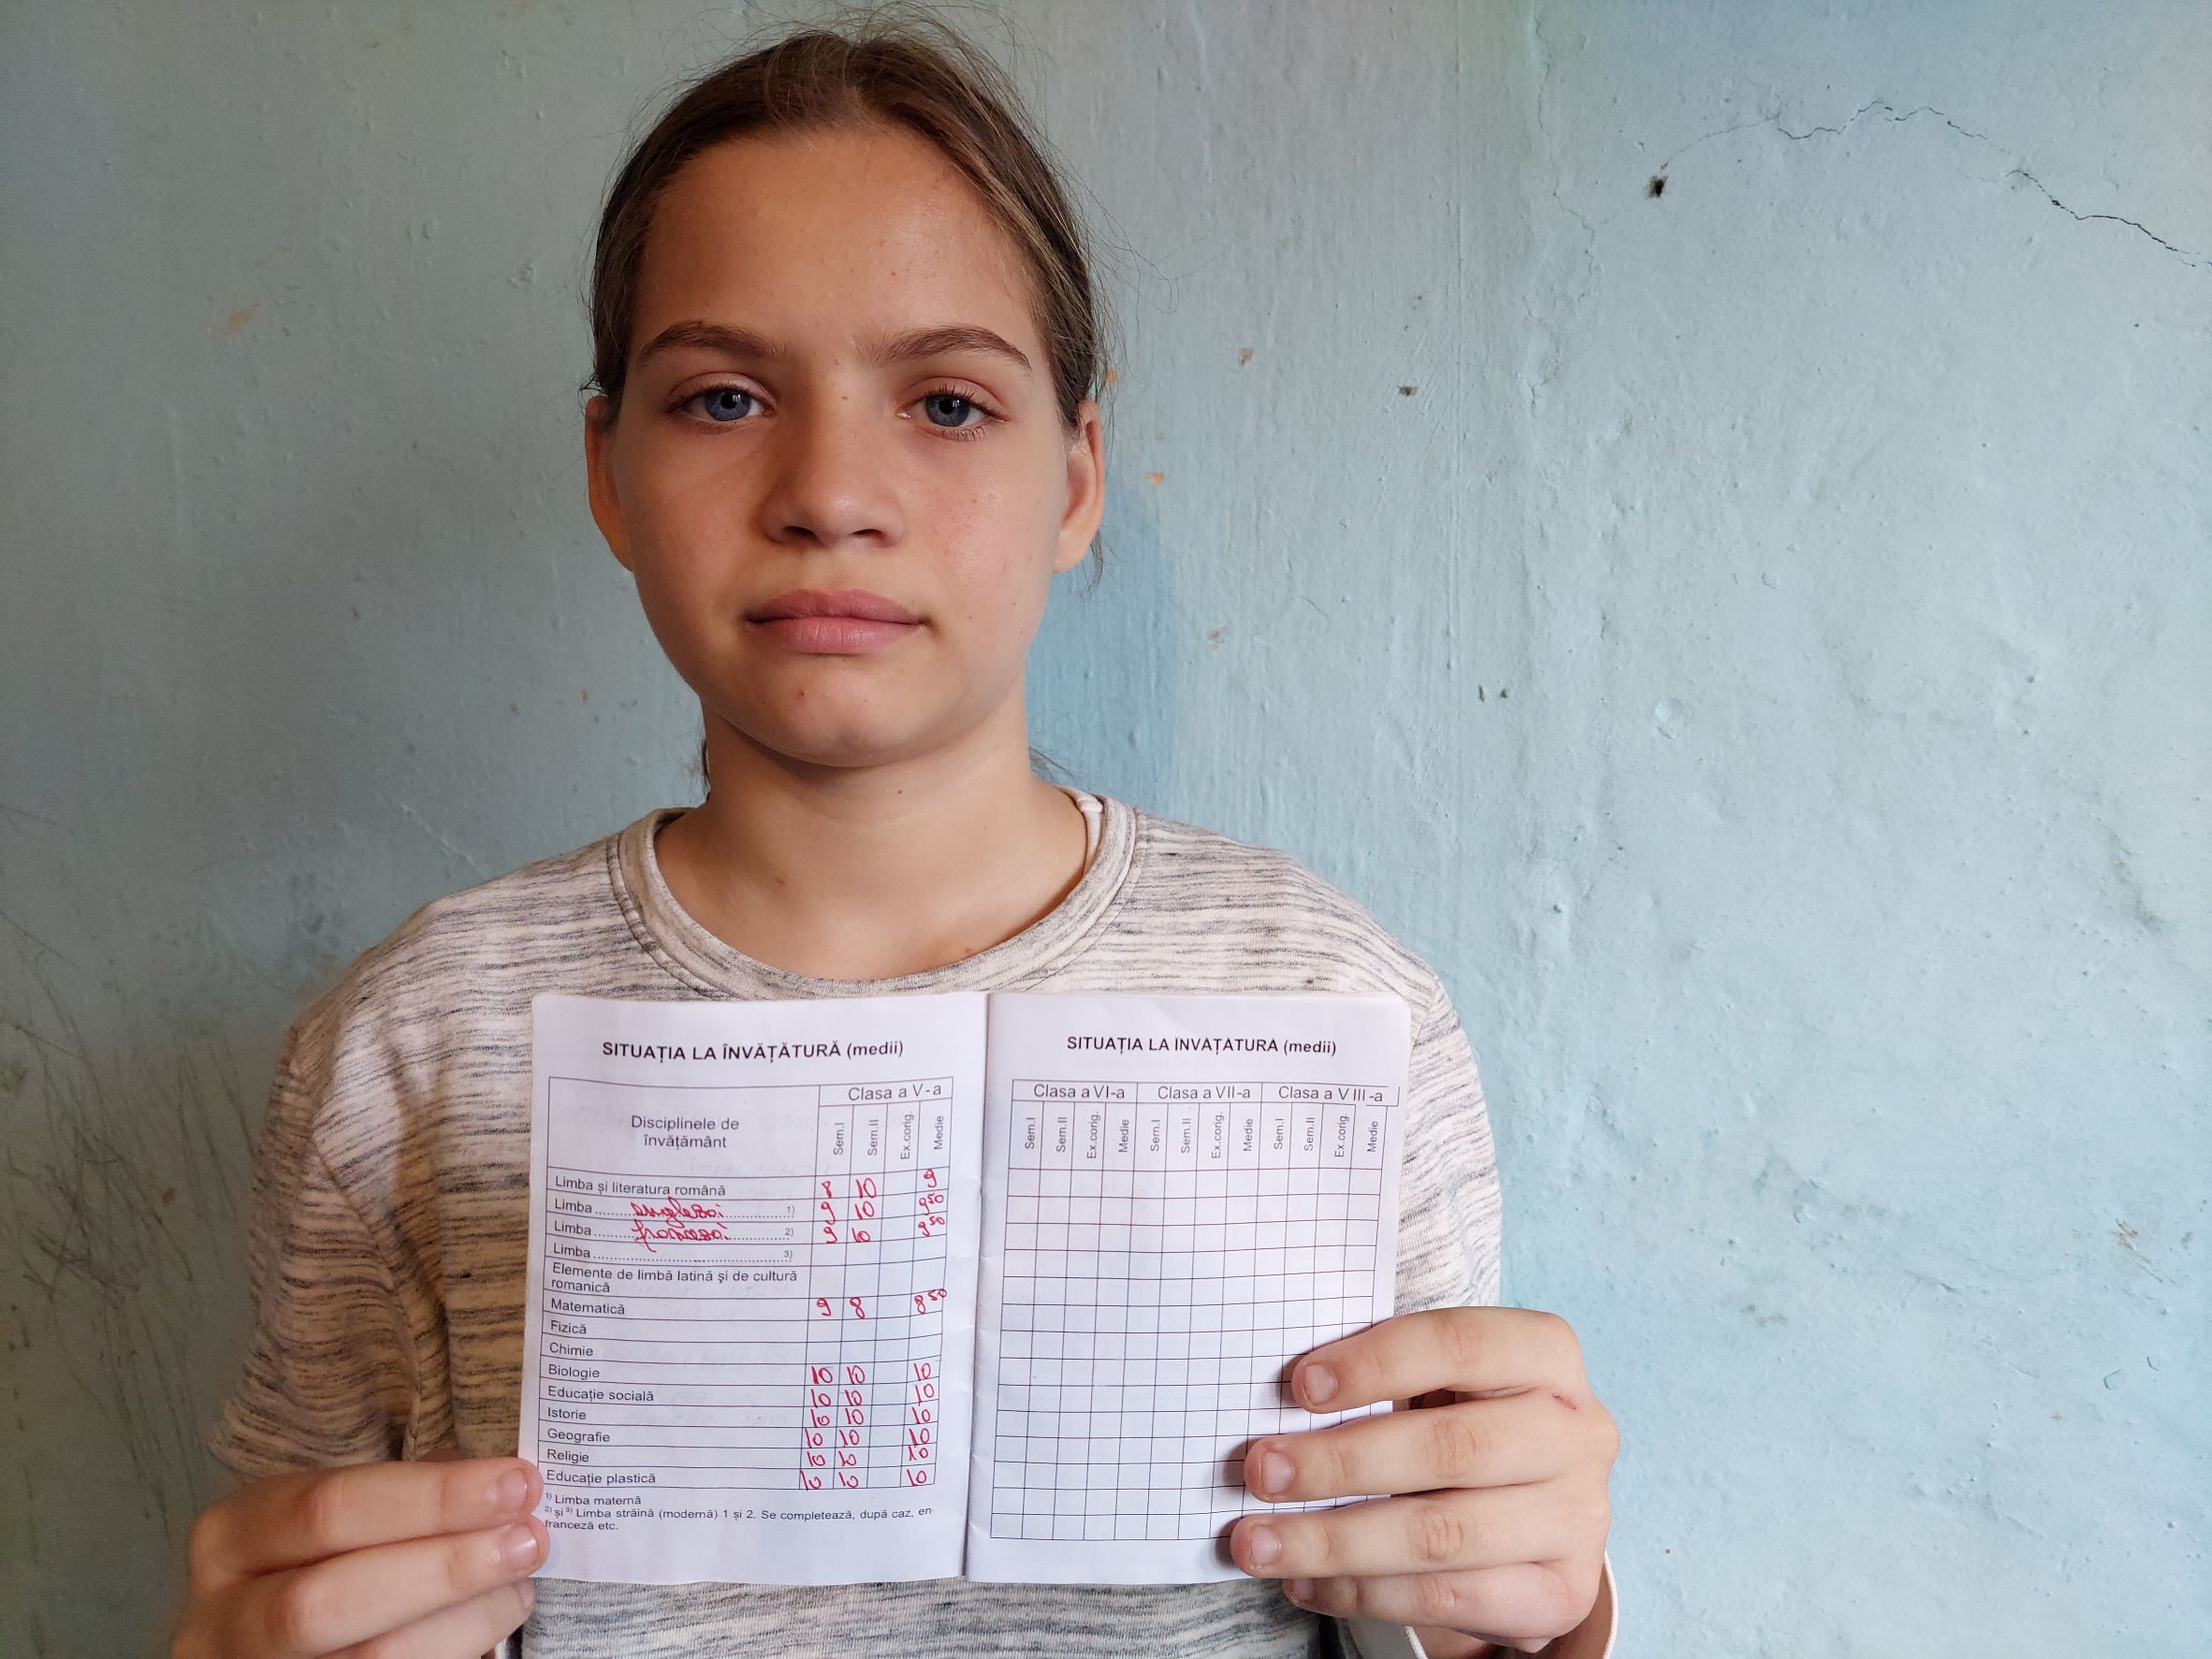 SITUAȚIA LA ÎNVĂȚĂTURĂ (medii)
Clasa a V-a
Disciplinele de
învățământ
Sem.I Sem.II Ex.corig. Medie
Limba și literatura română 8 10 9
Limba engleză 1) 9 10 9 50
Limba franceză 2) 9 10 9 50
Limba 3)
Elemente de limbă latină și de cultură
romanică
Matematică 9 8 8 50
Fizică
Chimie
Biologie 10 10 10
Educație socială 10 10 10
Istorie 10 10 10
Geografie 10 10 10
Religie 10 10 10
Educație plastică 10 10 10
1) Limba maternă
2) și 3) Limba străină (modernă) 1 și 2. Se completează, după caz, en
franceză etc.
SITUAȚIA LA INVAȚATURA (medii)
Clasa a VI-a Clasa a VII-a Clasa a VIII-a
Sem.I Sem.II Ex.corig. Medie Sem.I Sem.II Ex.corig. Medie Sem.I Sem.II Ex.corig. Medie